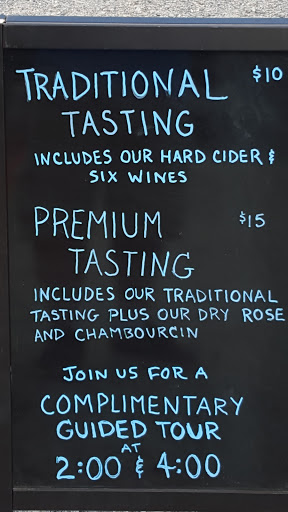 TRADITIONAL $10
TASTING
INCLUDES OUR HARD CIDER &
SIX WINES
PREMIUM $15
TASTING
INCLUDES OUR TRADITIONAL
TASTING PLUS OUR DRY ROSE
AND CHAMBOURCIN
JOIN US FOR A
COMPLIMENTARY
GUIDED TOUR
AT
2:00 & 4:00